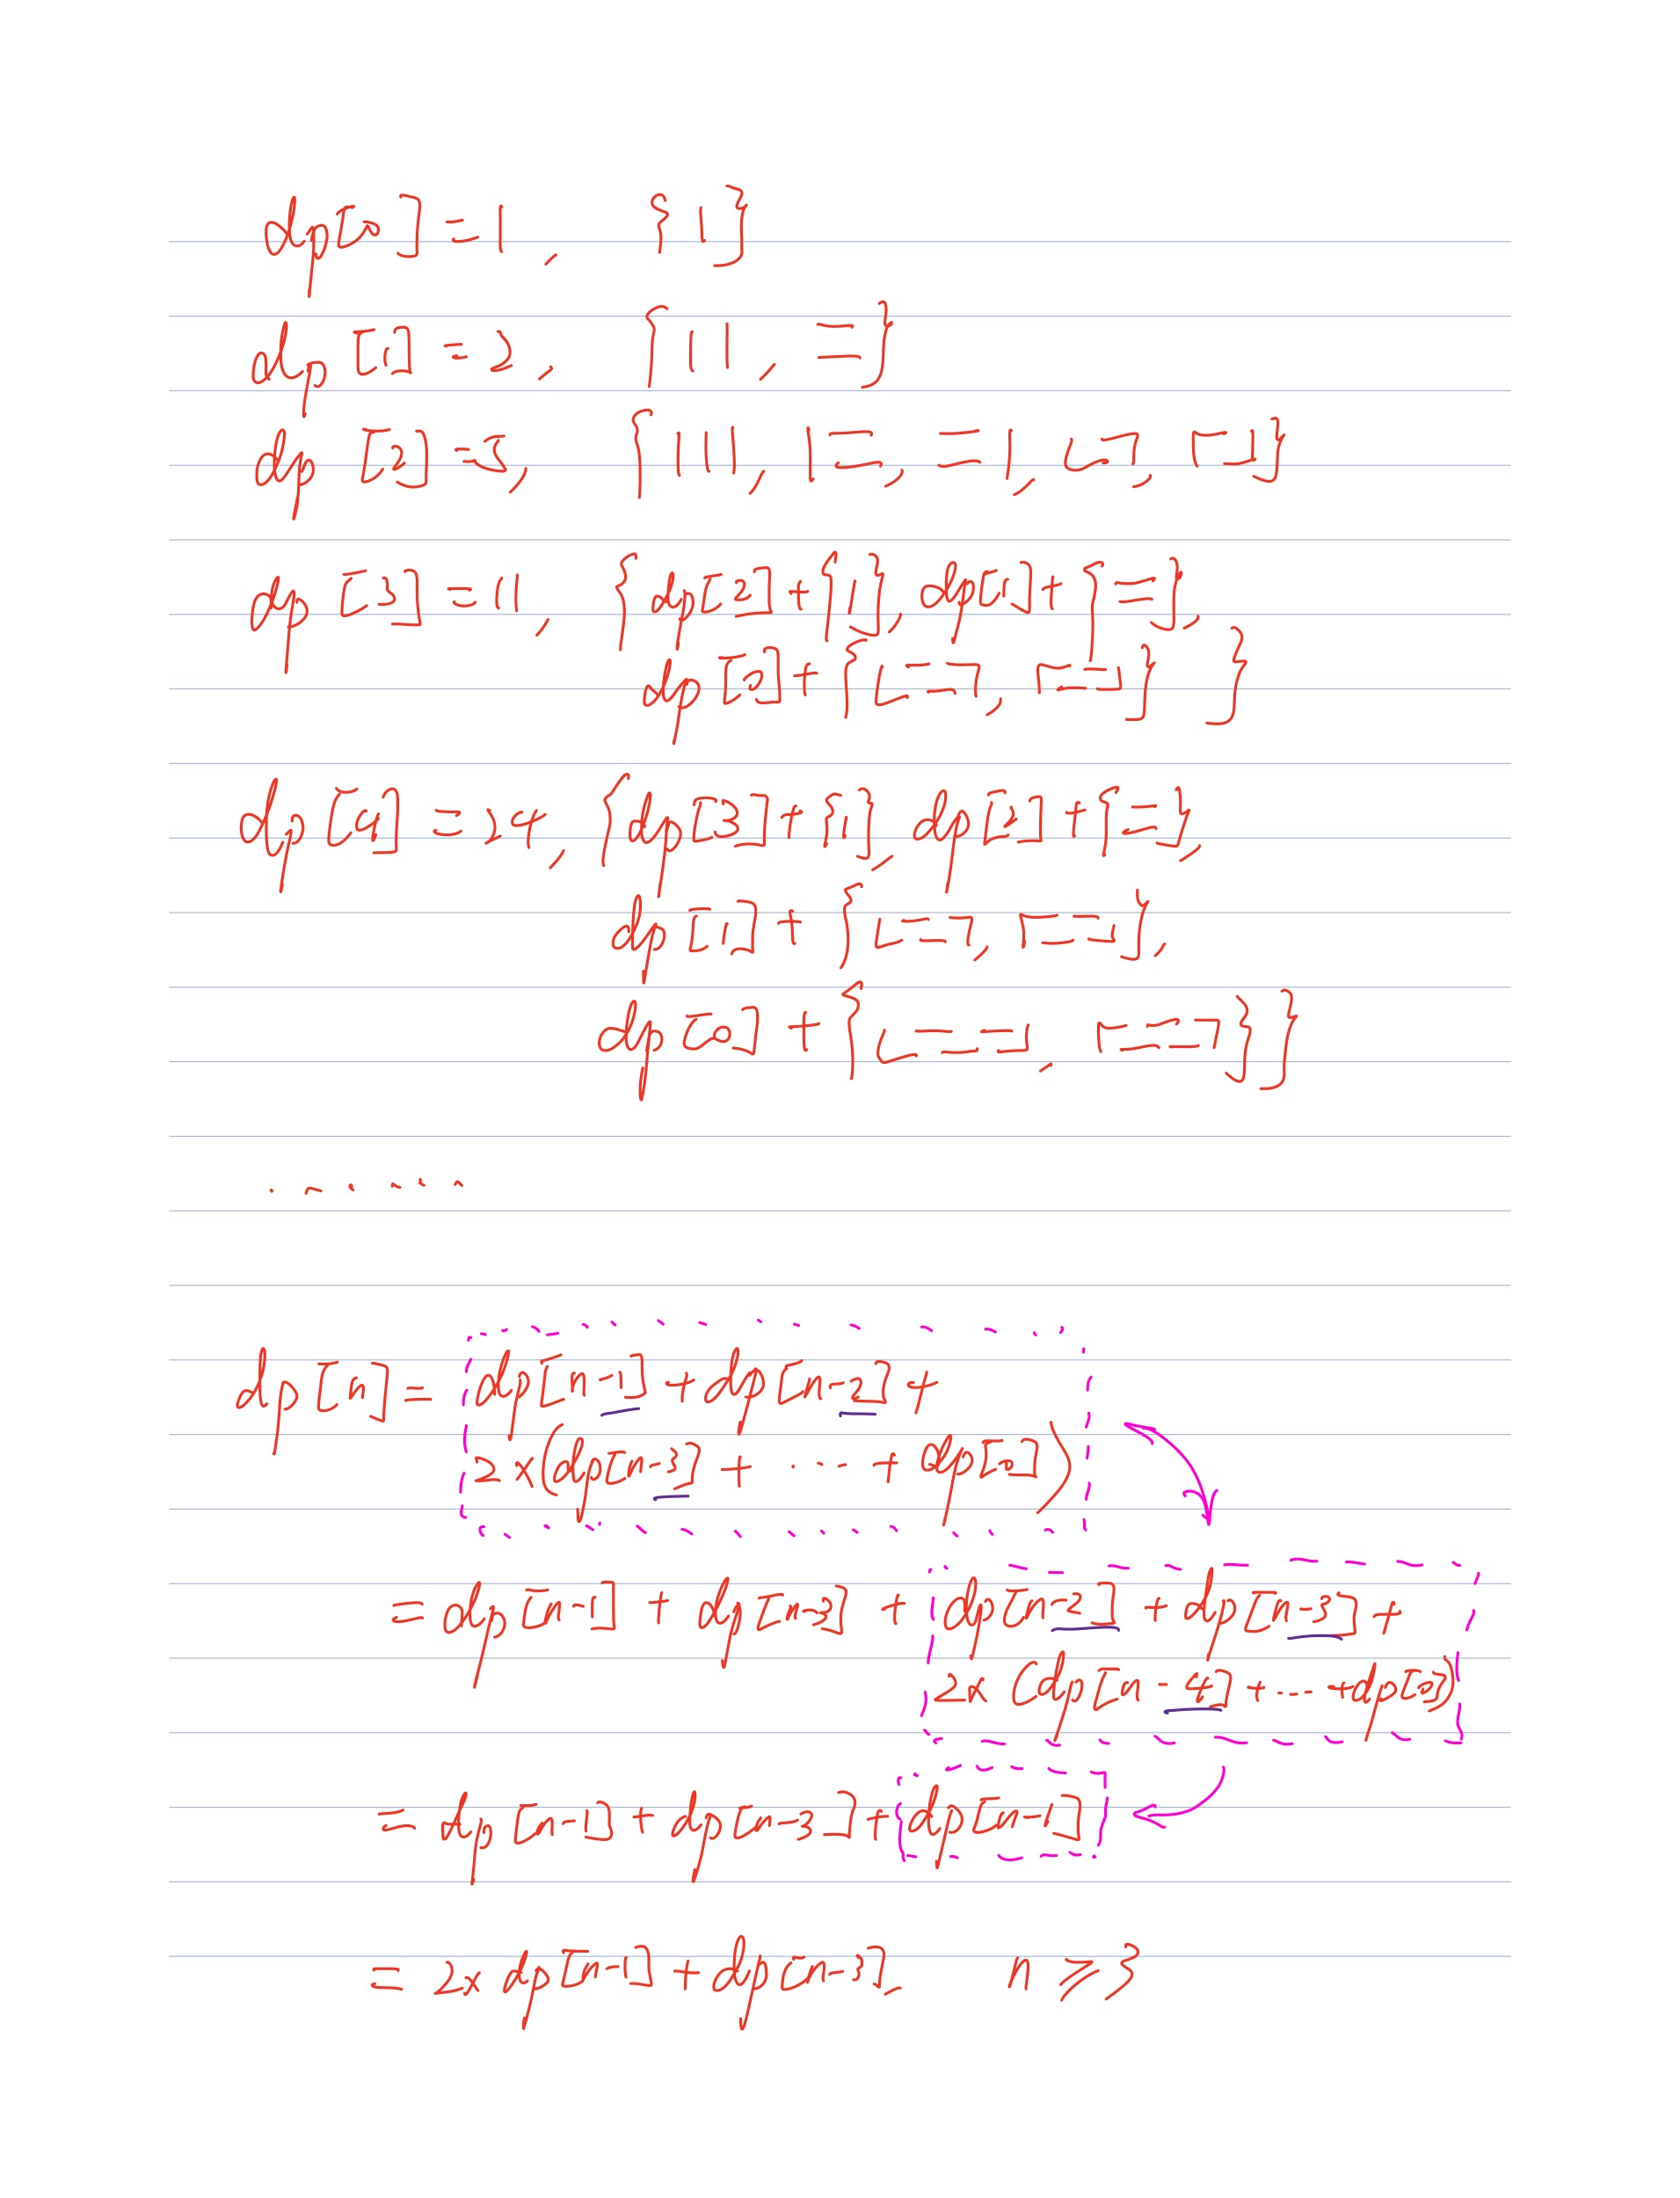 dp[0] = 1, {|}
dp[1] = 2, {||, =}
dp[2] = 5, {|||, |=, =|,
dp[3] = 11, {dp[2]+{|}, dp[1]+{=},
dp[0]+{
dp[4] = 24, {dp[3]+{|}, dp[2]+{=},
dp[1] + {
dp[0] + {
......
dp[n] = dp[n-1] + dp[n-2] +
2×(dp[n-3] + ... + dp[0])
= dp[n-1] + dp[n-3] + dp[n-2] + dp[n-3] +
2×(dp[n-4] + ... + dp[0])
= dp[n-1] + dp[n-3] + dp[n-1]
= 2× dp[n-1] + dp[n-3] n ≥ 3